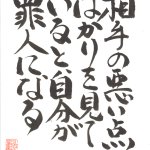 相手の悪い点
ばかりを見て
いると自分が
罪人になる